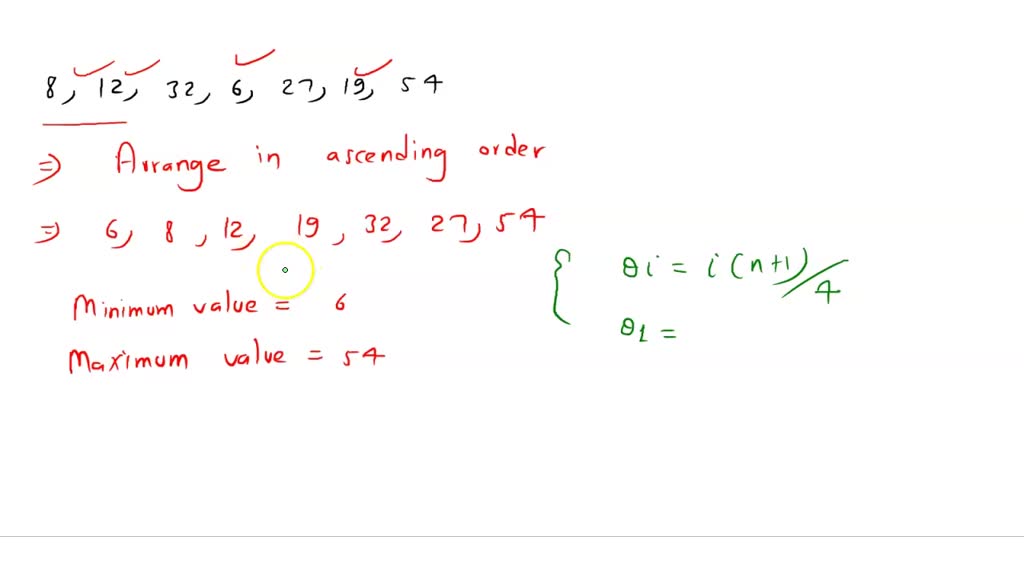 8, 12, 32, 6, 27, 19, 54
⇒ Arrange in ascending order
⇒ 6, 8, 12, 19, 32, 27, 54
Minimum value = 6
Maximum value = 54
θi = i(n+1)/4
θ1 =